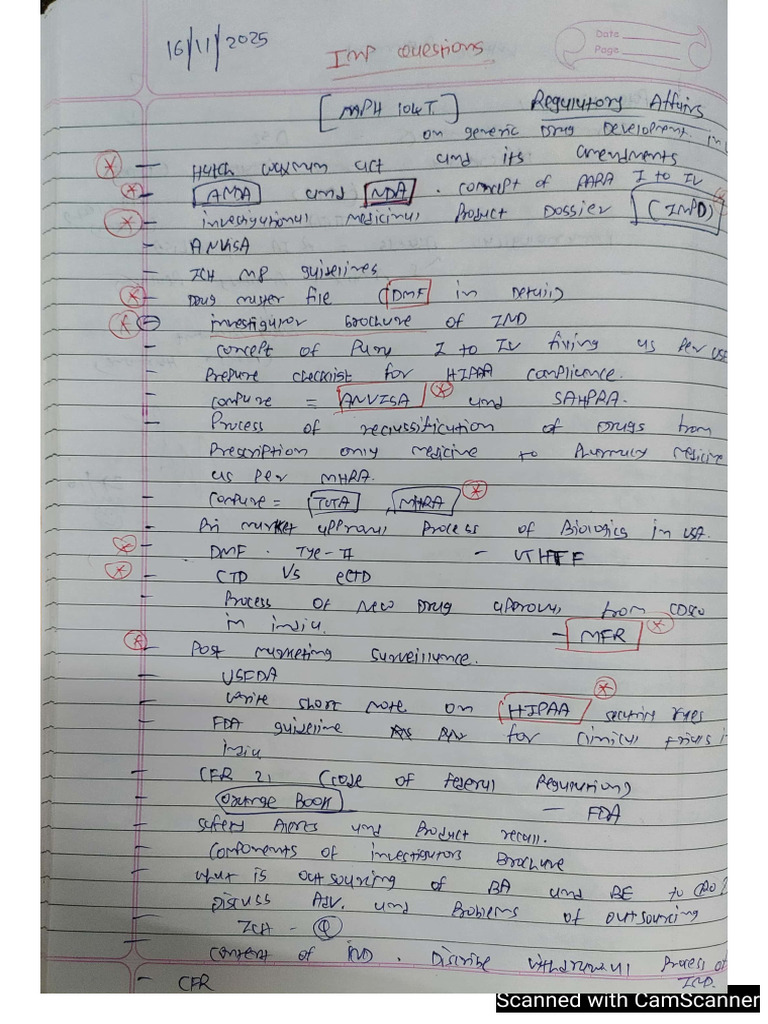 16/11/2025
IMP Questions
Date
Page
[MPH 104T] Regulatory Affairs
on generic Drug Development in
Hatch waxman act and its amendments
ANDA and NDA. concept of PAPA I to IV
investigational medicinal Product Dossier (IMPD)
ANVISA
ICH M8 guidelines
Drug master file (DMF in Detail)
investigator brochure of IND
concept of Para I to IV filing as per USF
Prepare checklist for HIPAA compliance.
compare = ANVISA and SAHPRA.
Process of reclassification of Drugs from
Prescription only medicine to Pharmacy medicine
as per MHRA.
compare = TGTA MHRA
Pri market approval Process of Biologics in USA.
DMF. Tye-II - VTHFF
CTD Vs eCTD
Process of New Drug approval from CDSCO
in india. - MFR
Post marketing Surveillance.
USFDA
write short note on HIPAA security rules
FDA guideline for clinical trials i
india
CFR 21 (code of federal Regulation)
Orange Book - FDA
Safety Alerts and Product recall.
Components of investigators Brochure
what is outsourcing of BA and BE to CRO?
Discuss Adv. and Problems of outsourcing
ICH - Q
content of IND. Discribe withdrawal process of
CFR IND.
Scanned with CamScanner